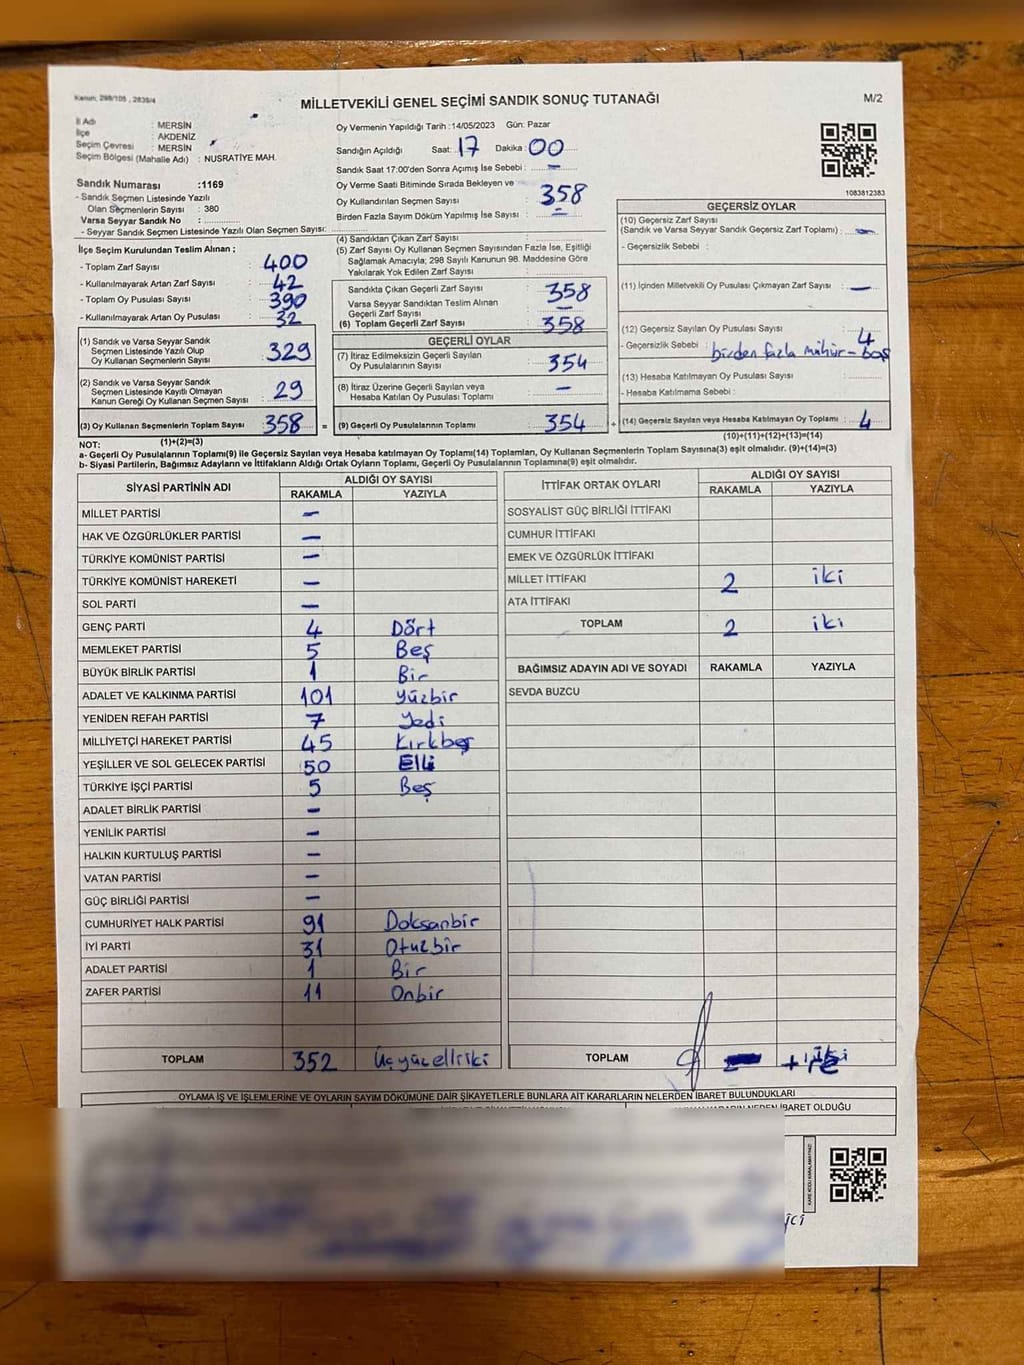 Kanun; 298/105 , 2839/4
MİLLETVEKİLİ GENEL SEÇİMİ SANDIK SONUÇ TUTANAĞI
M/2
İl Adı : MERSİN
İlçe : AKDENİZ
Seçim Çevresi : MERSİN
Seçim Bölgesi (Mahalle Adı) : NUSRATİYE MAH.
Sandık Numarası :1169
- Sandık Seçmen Listesinde Yazılı
Olan Seçmenlerin Sayısı : 380
Varsa Seyyar Sandık No :
- Seyyar Sandık Seçmen Listesinde Yazılı Olan Seçmen Sayısı:
Oy Vermenin Yapıldığı Tarih :14/05/2023 Gün: Pazar
Sandığın Açıldığı Saat: 17 Dakika: 00
Sandık Saat 17:00'den Sonra Açımış İse Sebebi : –
Oy Verme Saati Bitiminde Sırada Bekleyen ve
Oy Kullandırılan Seçmen Sayısı : 358
Birden Fazla Sayım Döküm Yapılmış İse Sayısı : –
1083812383
İlçe Seçim Kurulundan Teslim Alınan ;
- Toplam Zarf Sayısı : 400
- Kullanılmayarak Artan Zarf Sayısı : 42
- Toplam Oy Pusulası Sayısı : 390
- Kullanılmayarak Artan Oy Pusulası : 32
(1) Sandık ve Varsa Seyyar Sandık
Seçmen Listesinde Yazılı Olup
Oy Kullanan Seçmenlerin Sayısı : 329
(2) Sandık ve Varsa Seyyar Sandık
Seçmen Listesinde Kayıtlı Olmayan
Kanun Gereği Oy Kullanan Seçmen Sayısı : 29
(3) Oy Kullanan Seçmenlerin Toplam Sayısı : 358 =
(4) Sandıktan Çıkan Zarf Sayısı :
(5) Zarf Sayısı Oy Kullanan Seçmen Sayısından Fazla İse, Eşitliği
Sağlamak Amacıyla; 298 Sayılı Kanunun 98. Maddesine Göre
Yakılarak Yok Edilen Zarf Sayısı :
Sandıkta Çıkan Geçerli Zarf Sayısı : 358
Varsa Seyyar Sandıktan Teslim Alınan
Geçerli Zarf Sayısı : –
(6) Toplam Geçerli Zarf Sayısı : 358
GEÇERLİ OYLAR
(7) İtiraz Edilmeksizin Geçerli Sayılan
Oy Pusulalarının Sayısı : 354
(8) İtiraz Üzerine Geçerli Sayılan veya
Hesaba Katılan Oy Pusulası Toplamı : –
(9) Geçerli Oy Pusulalarının Toplamı : 354 +
GEÇERSİZ OYLAR
(10) Geçersiz Zarf Sayısı
(Sandık ve Varsa Seyyar Sandık Geçersiz Zarf Toplamı) : –
- Geçersizlik Sebebi :
(11) İçinden Milletvekili Oy Pusulası Çıkmayan Zarf Sayısı : –
(12) Geçersiz Sayılan Oy Pusulası Sayısı : 4
- Geçersizlik Sebebi : birden fazla mühür-baş
(13) Hesaba Katılmayan Oy Pusulası Sayısı :
- Hesaba Katılmama Sebebi :
(14) Geçersiz Sayılan veya Hesaba Katılmayan Oy Toplamı : 4
NOT: (1)+(2)=(3)
(10)+(11)+(12)+(13)=(14)
a- Geçerli Oy Pusulalarının Toplamı(9) ile Geçersiz Sayılan veya Hesaba katılmayan Oy Toplamı(14) Toplamları, Oy Kullanan Seçmenlerin Toplam Sayısına(3) eşit olmalıdır. (9)+(14)=(3)
b- Siyasi Partilerin, Bağımsız Adayların ve İttifakların Aldığı Ortak Oyların Toplamı, Geçerli Oy Pusulalarının Toplamına(9) eşit olmalıdır.
SİYASİ PARTİNİN ADI ALDIĞI OY SAYISI
RAKAMLA YAZIYLA
MİLLET PARTİSİ –
HAK VE ÖZGÜRLÜKLER PARTİSİ –
TÜRKİYE KOMÜNİST PARTİSİ –
TÜRKİYE KOMÜNİST HAREKETİ –
SOL PARTİ –
GENÇ PARTİ 4 Dört
MEMLEKET PARTİSİ 5 Beş
BÜYÜK BİRLİK PARTİSİ 1 Bir
ADALET VE KALKINMA PARTİSİ 101 Yüzbir
YENİDEN REFAH PARTİSİ 7 Yedi
MİLLİYETÇİ HAREKET PARTİSİ 45 Kırkbeş
YEŞİLLER VE SOL GELECEK PARTİSİ 50 Elli
TÜRKİYE İŞÇİ PARTİSİ 5 Beş
ADALET BİRLİK PARTİSİ –
YENİLİK PARTİSİ –
HALKIN KURTULUŞ PARTİSİ –
VATAN PARTİSİ –
GÜÇ BİRLİĞİ PARTİSİ –
CUMHURİYET HALK PARTİSİ 91 Doksanbir
İYİ PARTİ 31 Otuzbir
ADALET PARTİSİ 1 Bir
ZAFER PARTİSİ 11 Onbir
TOPLAM 352 Üçyüzelliiki
İTTİFAK ORTAK OYLARI ALDIĞI OY SAYISI
RAKAMLA YAZIYLA
SOSYALİST GÜÇ BİRLİĞİ İTTİFAKI
CUMHUR İTTİFAKI
EMEK VE ÖZGÜRLÜK İTTİFAKI
MİLLET İTTİFAKI 2 iki
ATA İTTİFAKI
TOPLAM 2 iki
BAĞIMSIZ ADAYIN ADI VE SOYADI RAKAMLA YAZIYLA
SEVDA BUZCU
TOPLAM
OYLAMA İŞ VE İŞLEMLERİNE VE OYLARIN SAYIM DÖKÜMÜNE DAİR ŞİKAYETLERLE BUNLARA AİT KARARLARIN NELERDEN İBARET BULUNDUKLARI
İBARET OLDUĞU